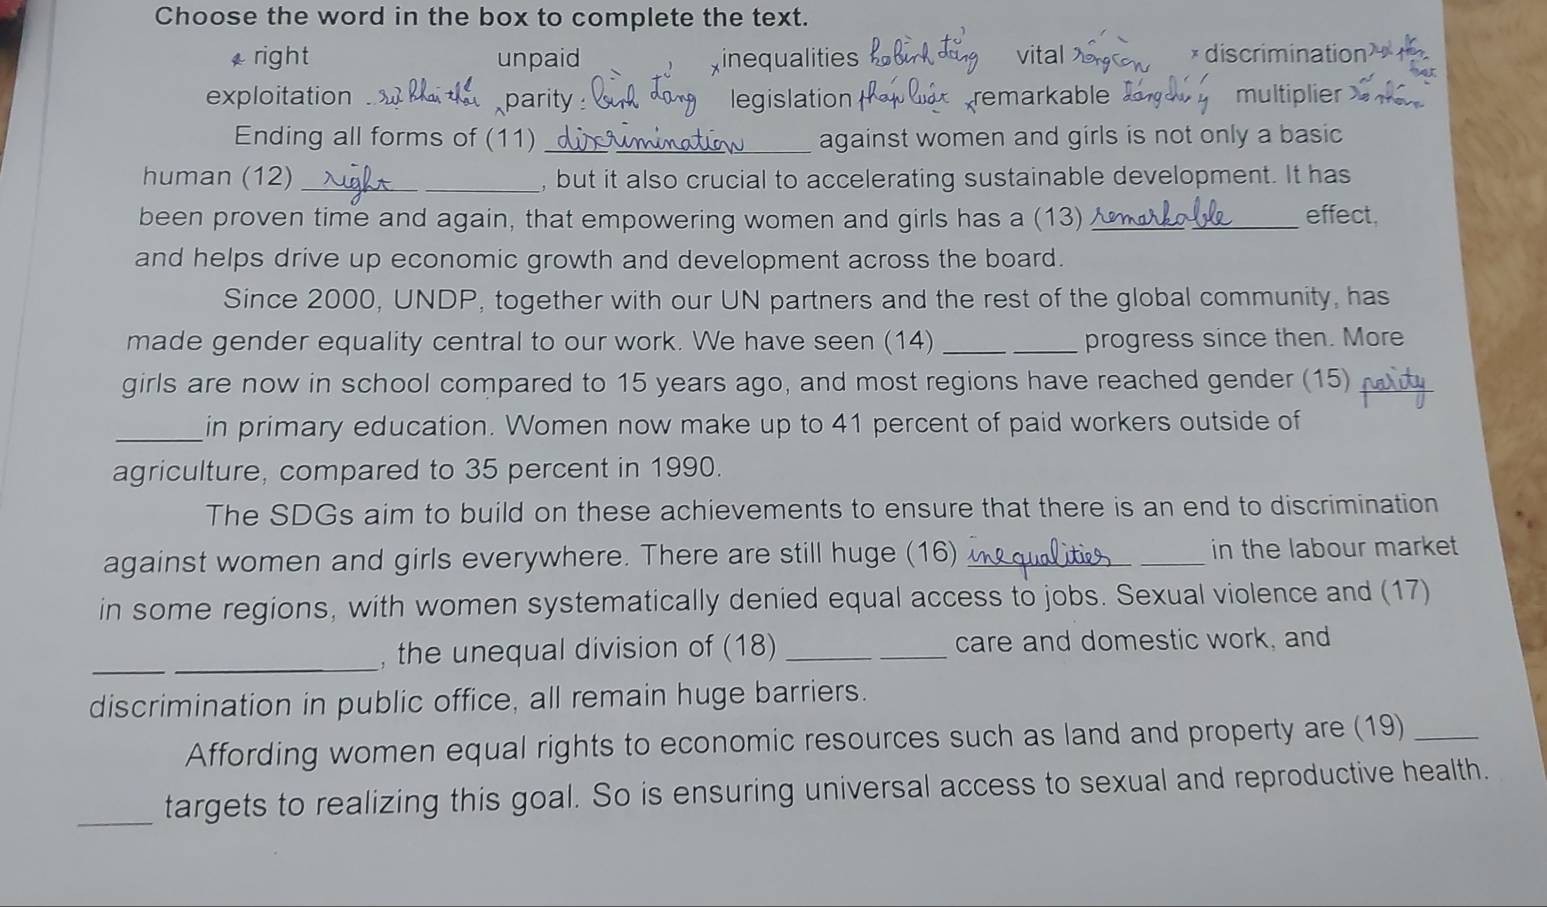 Choose the word in the box to complete the text.
right unpaid inequalities không bình đẳng vital discrimination
exploitation sự khai thác parity : bình đẳng legislation pháp luật remarkable đáng chú ý multiplier số nhân
Ending all forms of (11) discrimination against women and girls is not only a basic
human (12) right, but it also crucial to accelerating sustainable development. It has
been proven time and again, that empowering women and girls has a (13) remarkable effect,
and helps drive up economic growth and development across the board.
Since 2000, UNDP, together with our UN partners and the rest of the global community, has
made gender equality central to our work. We have seen (14) ____ ____ progress since then. More
girls are now in school compared to 15 years ago, and most regions have reached gender (15) parity
______in primary education. Women now make up to 41 percent of paid workers outside of
agriculture, compared to 35 percent in 1990.
The SDGs aim to build on these achievements to ensure that there is an end to discrimination
against women and girls everywhere. There are still huge (16) inequalities ____ in the labour market
in some regions, with women systematically denied equal access to jobs. Sexual violence and (17)
_____ ____________, the unequal division of (18) _____ ____ care and domestic work, and
discrimination in public office, all remain huge barriers.
Affording women equal rights to economic resources such as land and property are (19) ____
_____ targets to realizing this goal. So is ensuring universal access to sexual and reproductive health.